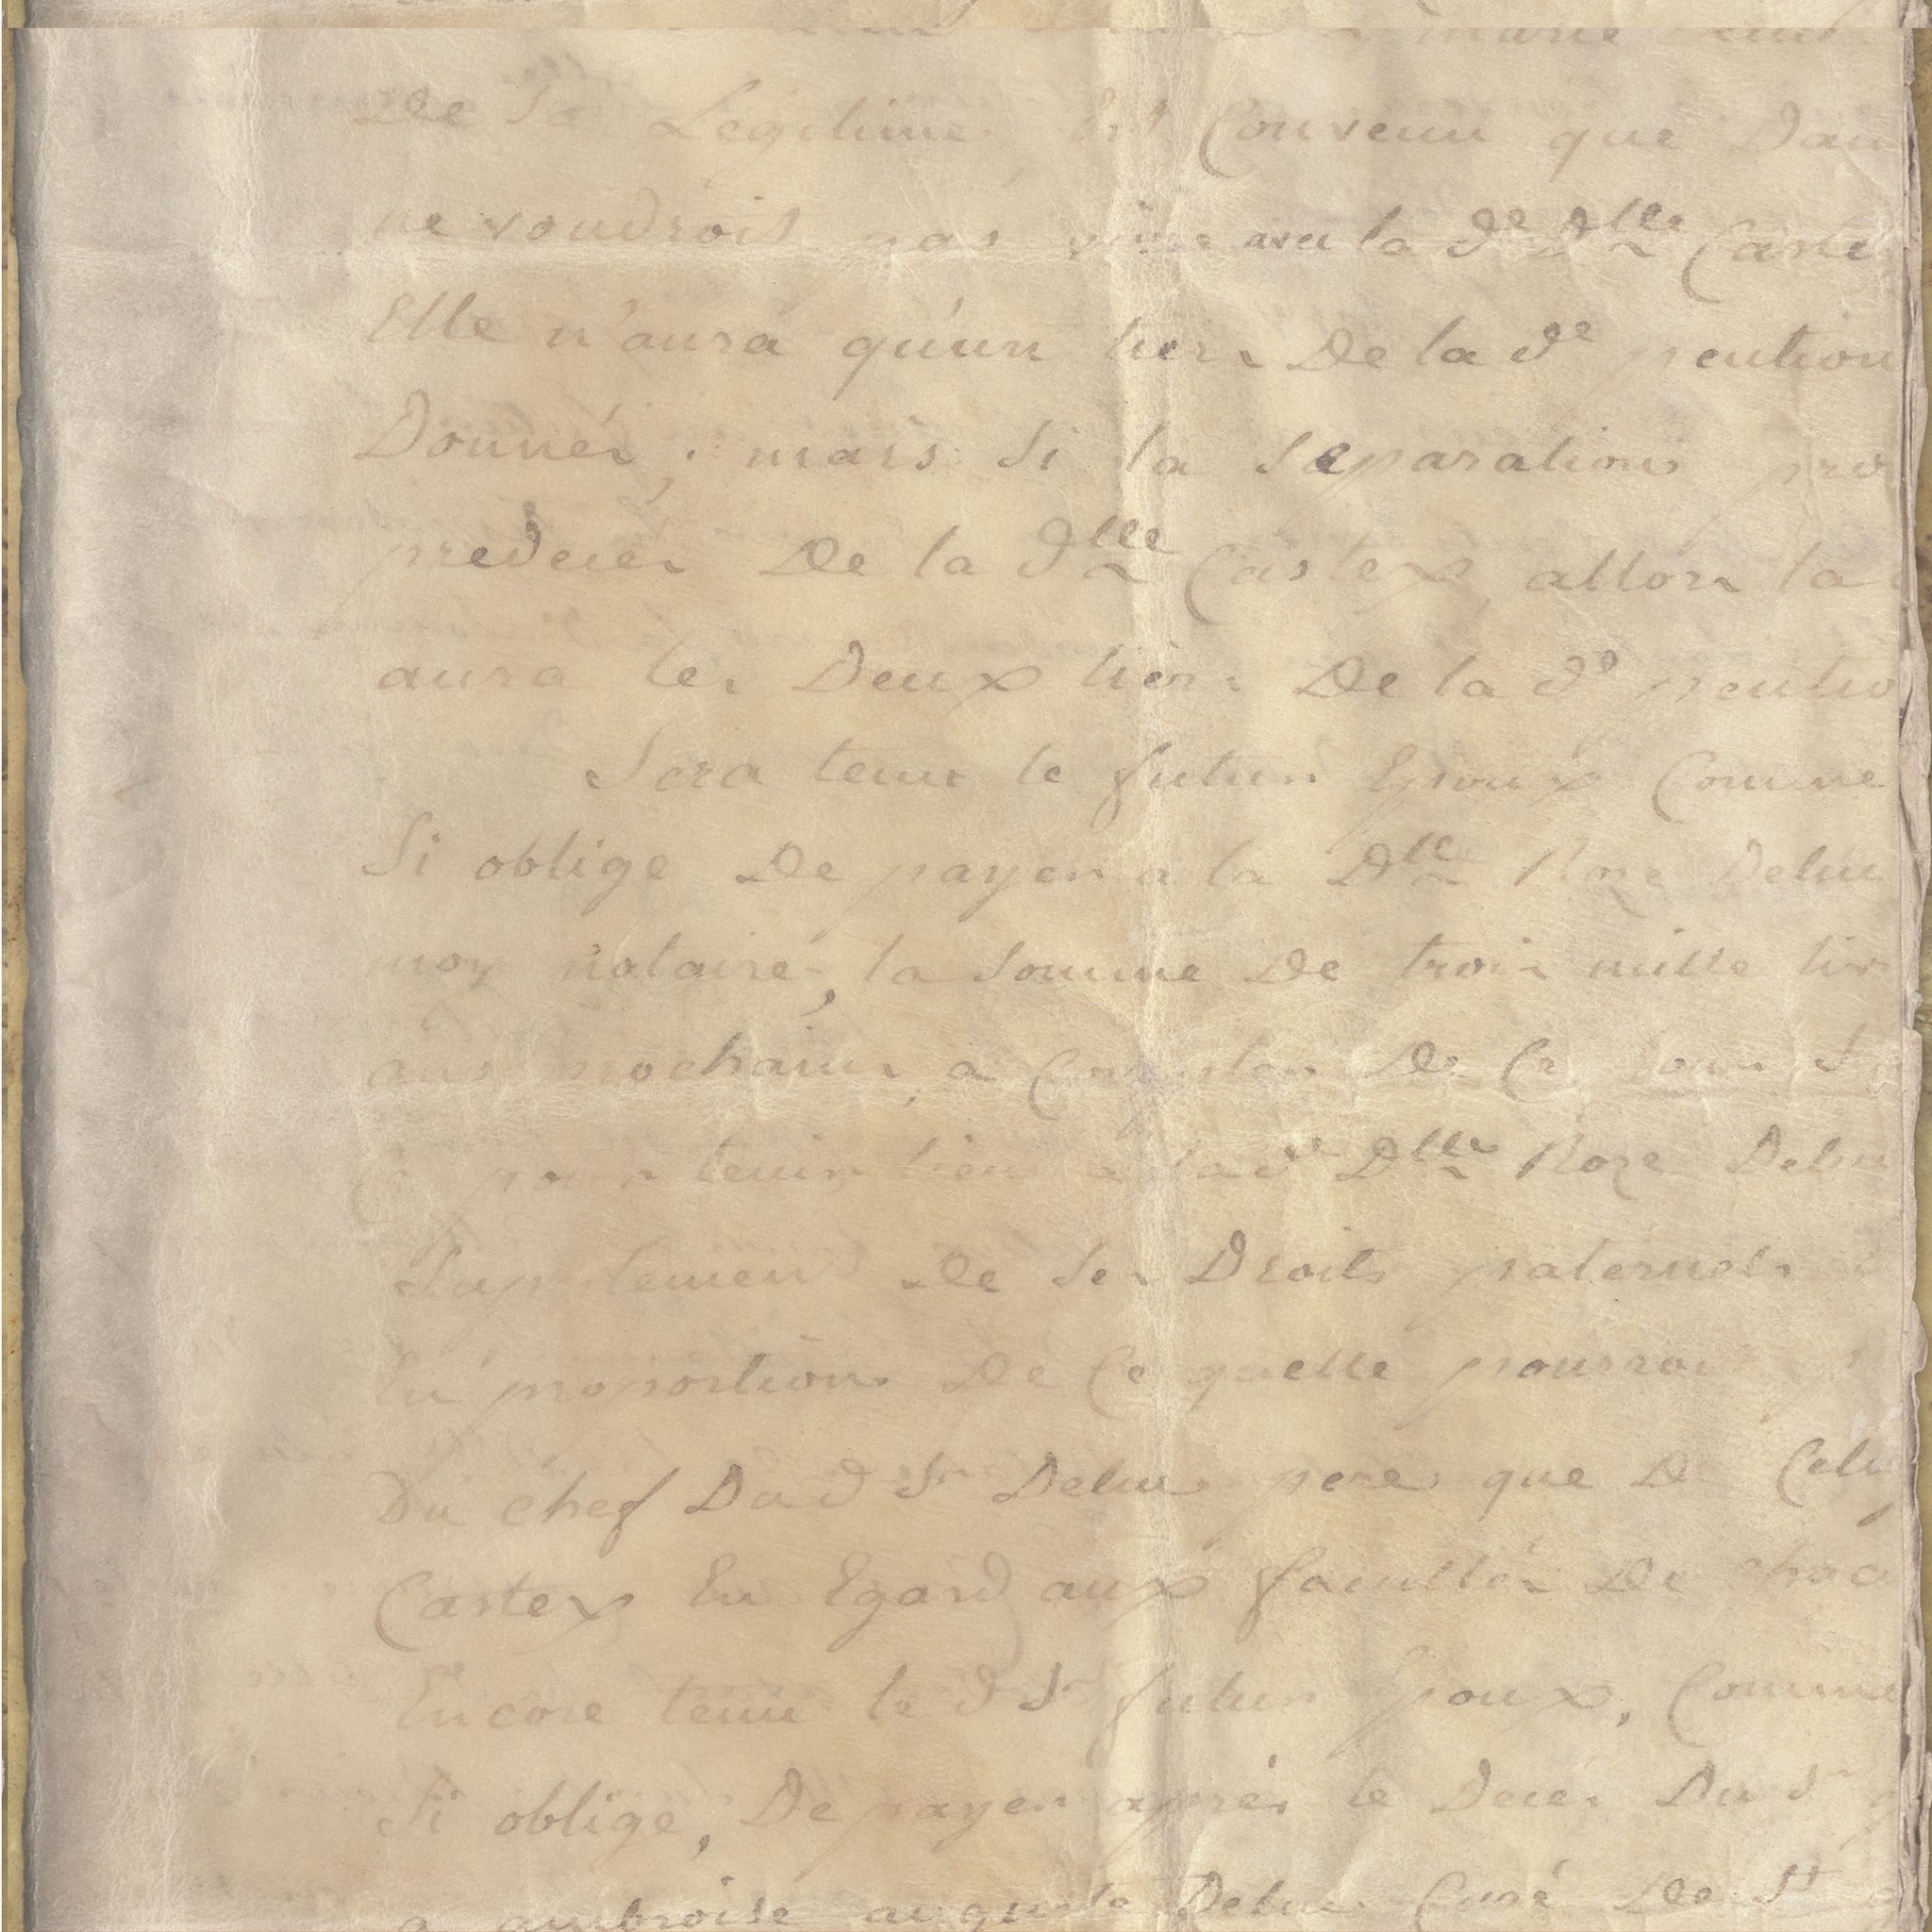 marie
De Sa Legitime Est Convenu que Dan
ne voudroit pas vivre avec la de Dlle Caste
Elle n'aura qu'un tiers De la de pention
Donnér; mais Si la Separation pro
predeces De la dlle Castex, allors la
aura les Deux tiers De la de pentio
Sera tenu le futur Epoux Comme
Si oblige De payer a la Dlle Roze Deluc
moy notaire, la Somme De trois mille liv
ans prochains, a Compter De Ce Jour
pour tenir lieu a lade Dlle Roze Delu
Suplement De Ses Droits paternels
En proportion De Ce quelle pourroi
Du chef Dud Sr Deluc pere que De Celu
Castex Eu Egard aux famillés De chac
Encore tenu le d Sr futur Epoux, Comme
Si oblige, De payer après le Deces Du Sr
a ambroise auguste Deluc Curé De St